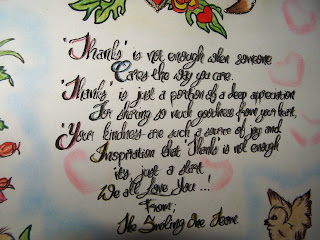 "Thanks" is not enough when someone
Cares the way you care.
"Thanks" is just a portion of a deep appreciation
For sharing so much goodness from your heart,
"Your kindness are such a source of joy and
Inspiration that "Thanks" is not enough
it's just a start.
We all Love You...!
From;
The Smiling One Team.